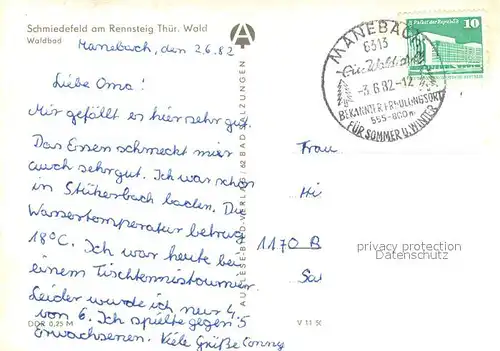 Schmiedefeld am Rennsteig Thür. Wald
Waldbad
Manebach, den 2.6.82
Liebe Oma!
Mir gefällt es hier sehr gut.
Das Essen schmeckt mir
auch sehr gut. Ich war schon
in Stützerbach baden. Die
Wassertemperatur betrug
18°C. Ich war heute bei
einem Tischtennistournier.
Leider wurde ich nur 4.
von 6. Ich spielte gegen 5
Erwachsenen. Viele Grüße Conny
DDR 0,25 M
V 11 50
AUSLESE-BILD-VERLAG / 62 BAD SALZUNGEN
A
MANEBACH
6313
-3.6.82-12
BEKANNTER ERHOLUNGSORT
555-800m
FÜR SOMMER U. WINTER
Palast der Republik
10
Frau
Hi
1170 B
Sa
privacy protection
Datenschutz